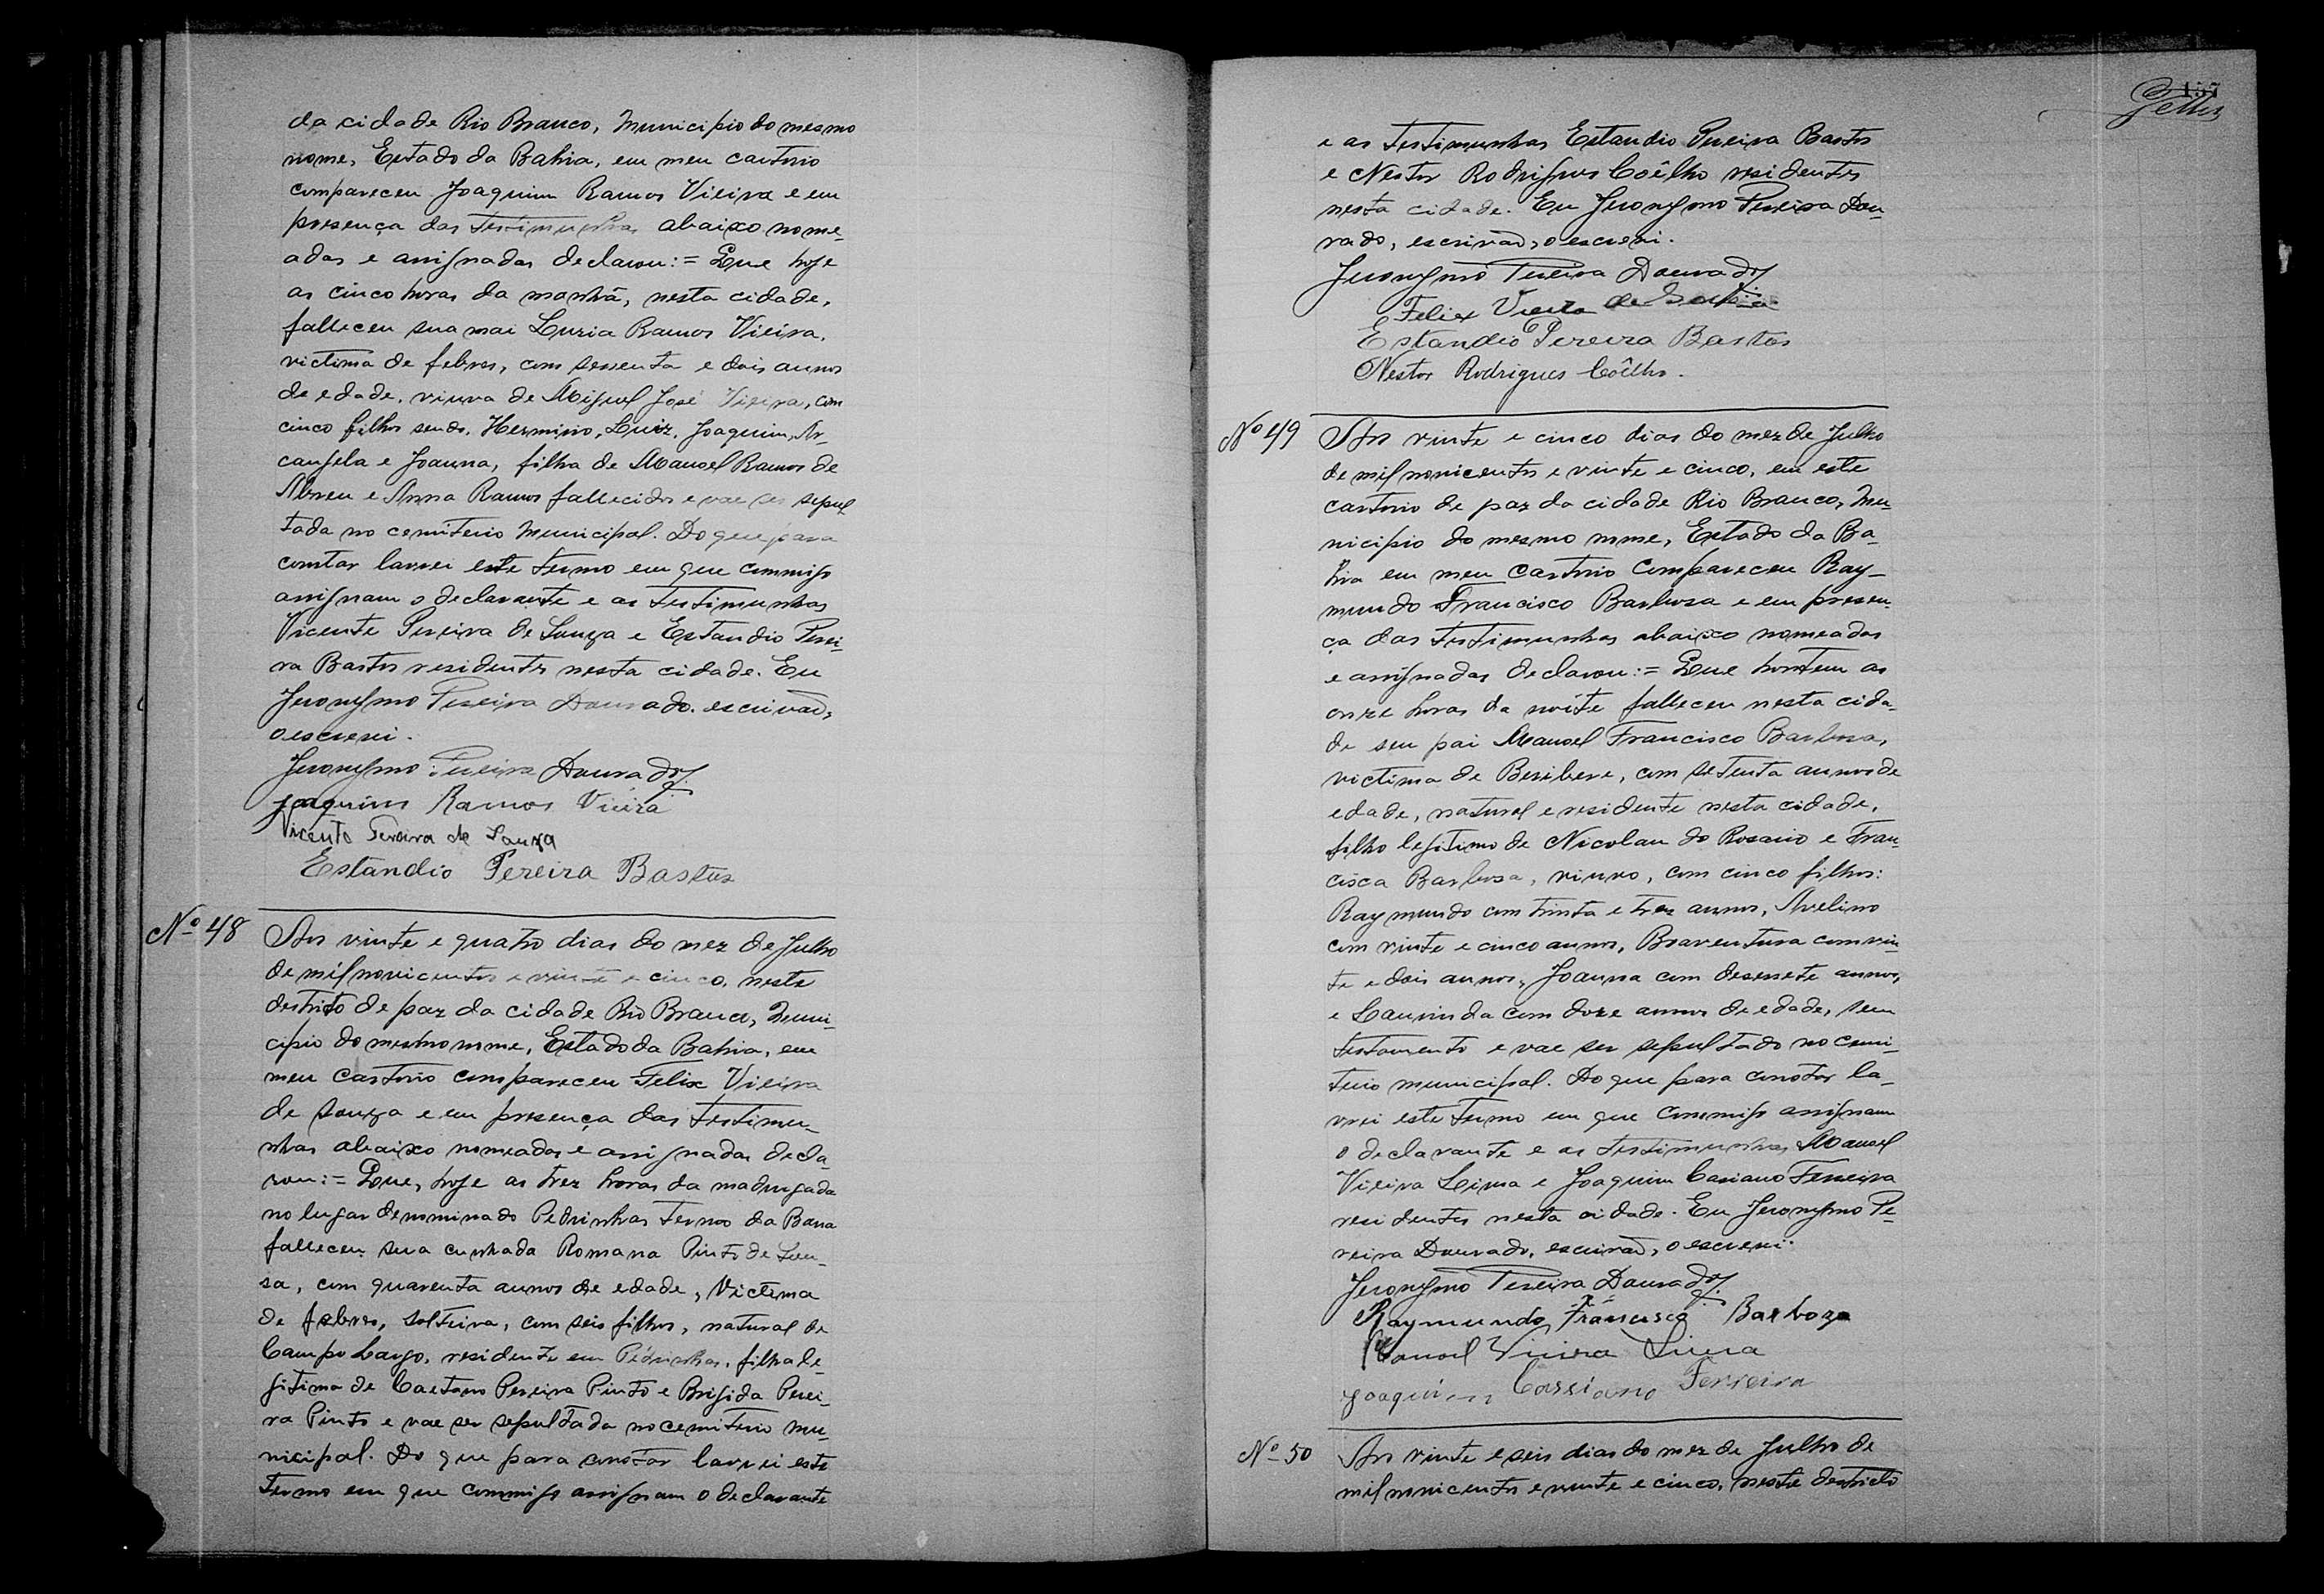 da cidade Rio Branco, Municipio do mesmo
nome, Estado da Bahia, em meu cartorio
compareceu Joaquim Ramos Vieira e em
presença das testimunhas abaixo nome-
adas e assignadas declarou:= Que hoje
as cinco horas da manhã, nesta cidade,
falleceu sua mai Luzia Ramos Vieira,
victima de febres, com sessenta e dois annos
de edade, viuva de Miguel José Vieira, com
cinco filhos sendo, Herminio, Luiz, Joaquim, Ar-
canjela e Joanna, filha de Manoel Ramos de
Abreu e Anna Ramos fallecidos e vae ser sepul
tada no cemiterio Municipal. Do que para
constar lavrei este termo em que commigo
assignam o declarante e as testimunhas
Vicente Pereira de Souza e Estandio Perei-
ra Bastos residentes nesta cidade. Eu
Jeronymo Pereira Dourado, escrivão,
o escrevi.
Jeronymo Pereira Dourado
Joaquim Ramos Vieira
Vicente Pereira de Souza
Estandio Pereira Bastos
Nº 48 Aos vinte e quatro dias do mez de Julho
de mil novicentos e vinte e cinco, neste
destrito de paz da cidade Rio Branco, Muni-
cipio do mesmo nome, Estado da Bahia, em
meu Cartorio compareceu Felix Vieira
de Souza e em presença das testimu-
nhas abaixo nomeadas e assignadas decla-
rou:= Que, hoje as trez horas da madrugada
no lugar denominado Pedrinhas termo da Barra
falleceu sua cunhada Romana Pinto de Sou-
sa, com quarenta annos de edade, victima
de febres, solteira, com seis filhos, natural de
Campo Largo, residente em Pedrinhas, filha le-
gitima de Caetano Pereira Pinto e Brigida Perei-
ra Pinto e vae ser sepultada no cemiterio mu-
nicipal. Do que para constar lavrei este
termo em que commigo assignam o declarante
157
e as testimunhas Estandio Pereira Bastos
e Nestor Rodrigues Coêlho residentes
nesta cidade. Eu Jeronymo Pereira Dou-
rado, escrivão, o escrevi.
Jeronymo Pereira Dourado
Felix Vieira de
Estandio Pereira Bastos
Nestor Rodrigues Coêlho.
Nº 49 Aos vinte e cinco dias do mez de Julho
de mil novicentos e vinte e cinco, em este
cartorio de paz da cidade Rio Branco, Mu-
nicipio do mesmo nome, Estado da Ba-
hia em meu Cartorio Compareceu Ray-
mundo Francisco Barbosa e em presen-
ça das testimunhas abaixo nomeadas
e assignadas declarou:= Que hontem as
onze horas da noite falleceu nesta cida-
de seu pai Manoel Francisco Barbosa,
victima de Beribere, com setenta annos de
edade, natural e residente nesta cidade,
filho legitimo de Nicolau do Rosario e Fran-
cisca Barbosa, viuvo, com cinco filhos:
Raymundo com trinta e trez annos, Avelino
com vinte e cinco annos, Boaventura com vin-
te e dois annos, Joanna com desessete annos,
e Laurinda com doze annos de edade, sem
testamento e vae ser sepultado no cemi-
terio municipal. Do que para constar la-
vrei este termo em que commigo assignam
o declarante e as testimunhas Manoel
Vieira Lima e Joaquim Casiano Ferreira
residentes nesta cidade. Eu Jeronymo Pe-
reira Dourado, escrivão, o escrevi.
Jeronymo Pereira Dourado
Raymundo Francisco Barboza
Manoel Vieira Lima
Joaquim Cassiano Ferreira
Nº 50 Aos vinte e seis dias do mez de Julho de
mil novicentos e vinte e cinco, neste destricto